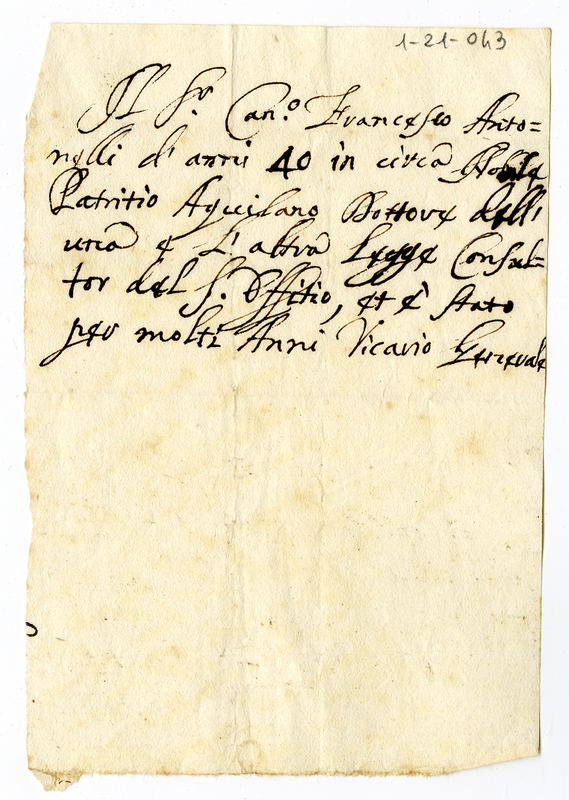 1-21-043
Il Sr. Can.º Francesco Anto=
nelli d'anni 40 in circa Nobile
Patritio Aquilano Dottore dell'
una e l'altra legge Consul=
tor del S. Offitio, et è stato
per molti Anni Vicario Generale